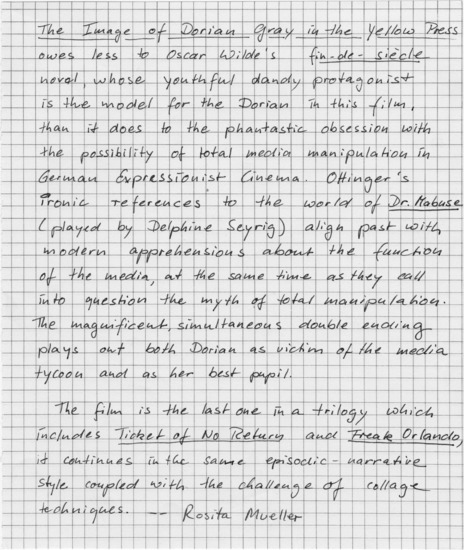 The Image of Dorian Gray in the Yellow Press
owes less to Oscar Wilde's fin-de-siècle
novel, whose youthful dandy protagonist
is the model for the Dorian in this film,
than it does to the phantastic obsession with
the possibility of total media manipulation in
German Expressionist Cinema. Ottinger's
ironic references to the world of Dr. Mabuse
(played by Delphine Seyrig) align past with
modern apprehensions about the function
of the media, at the same time as they call
into question the myth of total manipulation.
The magnificent, simultaneous double ending
plays out both Dorian as victim of the media
tycoon and as her best pupil.
The film is the last one in a trilogy which
includes Ticket of No Return and Freak Orlando,
it continues in the same episodic-narrative
style coupled with the challenge of collage
techniques. -- Rosita Mueller